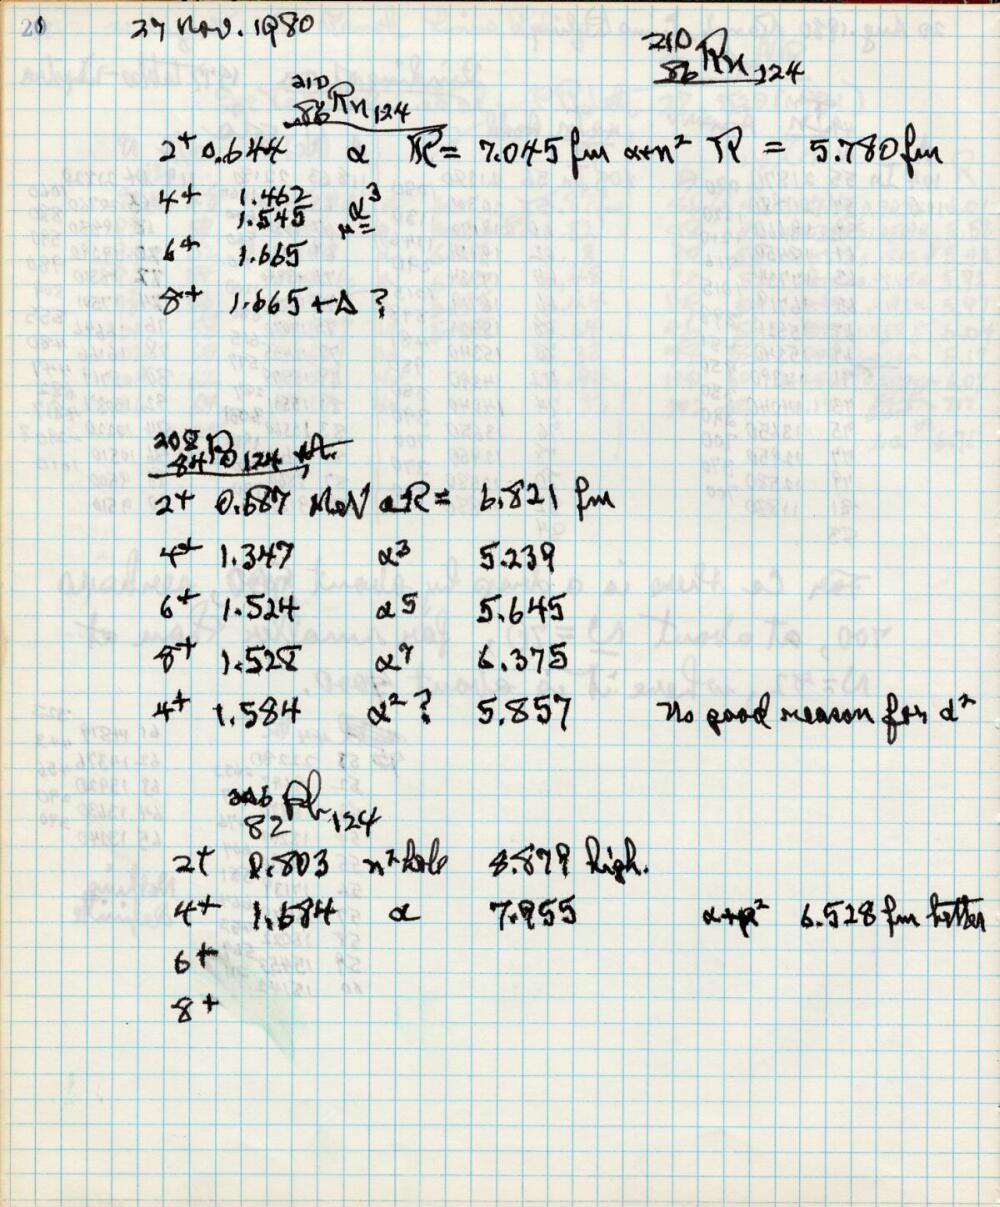 20 27 Nov. 1980
210 86 Rn 124
210 86 Rn 124
2+ 0.644 α R = 7.045 fm α+n² R = 5.780 fm
4+ 1.462 α³
1.545
6+ 1.665
8+ 1.665 + Δ ?
208 84 Po 124
2+ 0.687 MeV α R = 6.821 fm
4+ 1.347 α³ 5.239
6+ 1.524 α⁵ 5.645
8+ 1.528 α⁷ 6.375
4+ 1.584 α² ? 5.857 No good reason for α²
206 82 Pb 124
2+ 0.803 n² hole 8.879 high.
4+ 1.684 α 7.955 α+p² 6.528 fm better
6+
8+